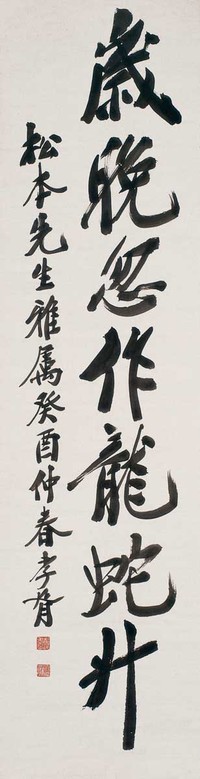 歲晚忽作龍蛇升
松本先生雅屬癸酉仲春孝胥